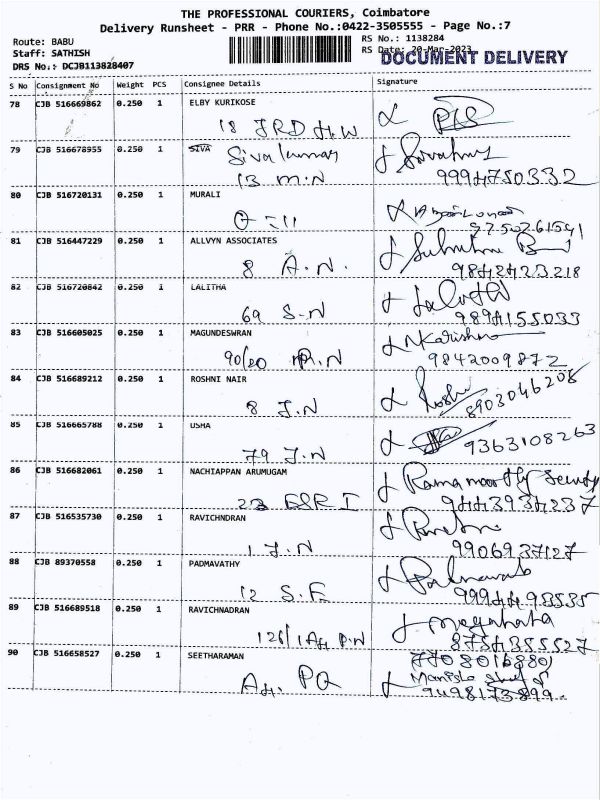 THE PROFESSIONAL COURIERS, Coimbatore
Delivery Runsheet - PRR - Phone No.:0422-3505555 - Page No.:7
Route: BABU
RS No.: 1138284
Staff: SATHISH
RS Date: 20-Mar-2023
DOCUMENT DELIVERY
DRS No.: DCJB113828407
S No Consignment No Weight PCS Consignee Details Signature
78 CJB 516669862 0.250 1 ELBY KURIKOSE
18 H.W
79 CJB 516678955 0.250 1 SIVA Sivakumar
13 M.N
9994750332
80 CJB 516720131 0.250 1 MURALI
81 CJB 516447229 0.250 1 ALLVYN ASSOCIATES
8 A.N.
9842423218
82 CJB 516720842 0.250 1 LALITHA
69 S-N Lalitha
9894155033
83 CJB 516605025 0.250 1 MAGUNDESWRAN
90/20 N
9842009872
84 CJB 516689212 0.250 1 ROSHNI NAIR
8 J.N Roshni
8903046208
85 CJB 516665788 0.250 1 USHA
79 J.N 9363108263
86 CJB 516682061 0.250 1 NACHIAPPAN ARUMUGAM
Ramamoorthy Security
23 ESR I 9443934237
87 CJB 516535730 0.250 1 RAVICHNDRAN
1 J.N
9906937127
88 CJB 89370558 0.250 1 PADMAVATHY
12 S.F
9994498535
89 CJB 516689518 0.250 1 RAVICHNADRAN
126/1A P.N
8754355527
90 CJB 516658527 0.250 1 SEETHARAMAN
7708016880
Manisha
9498173899